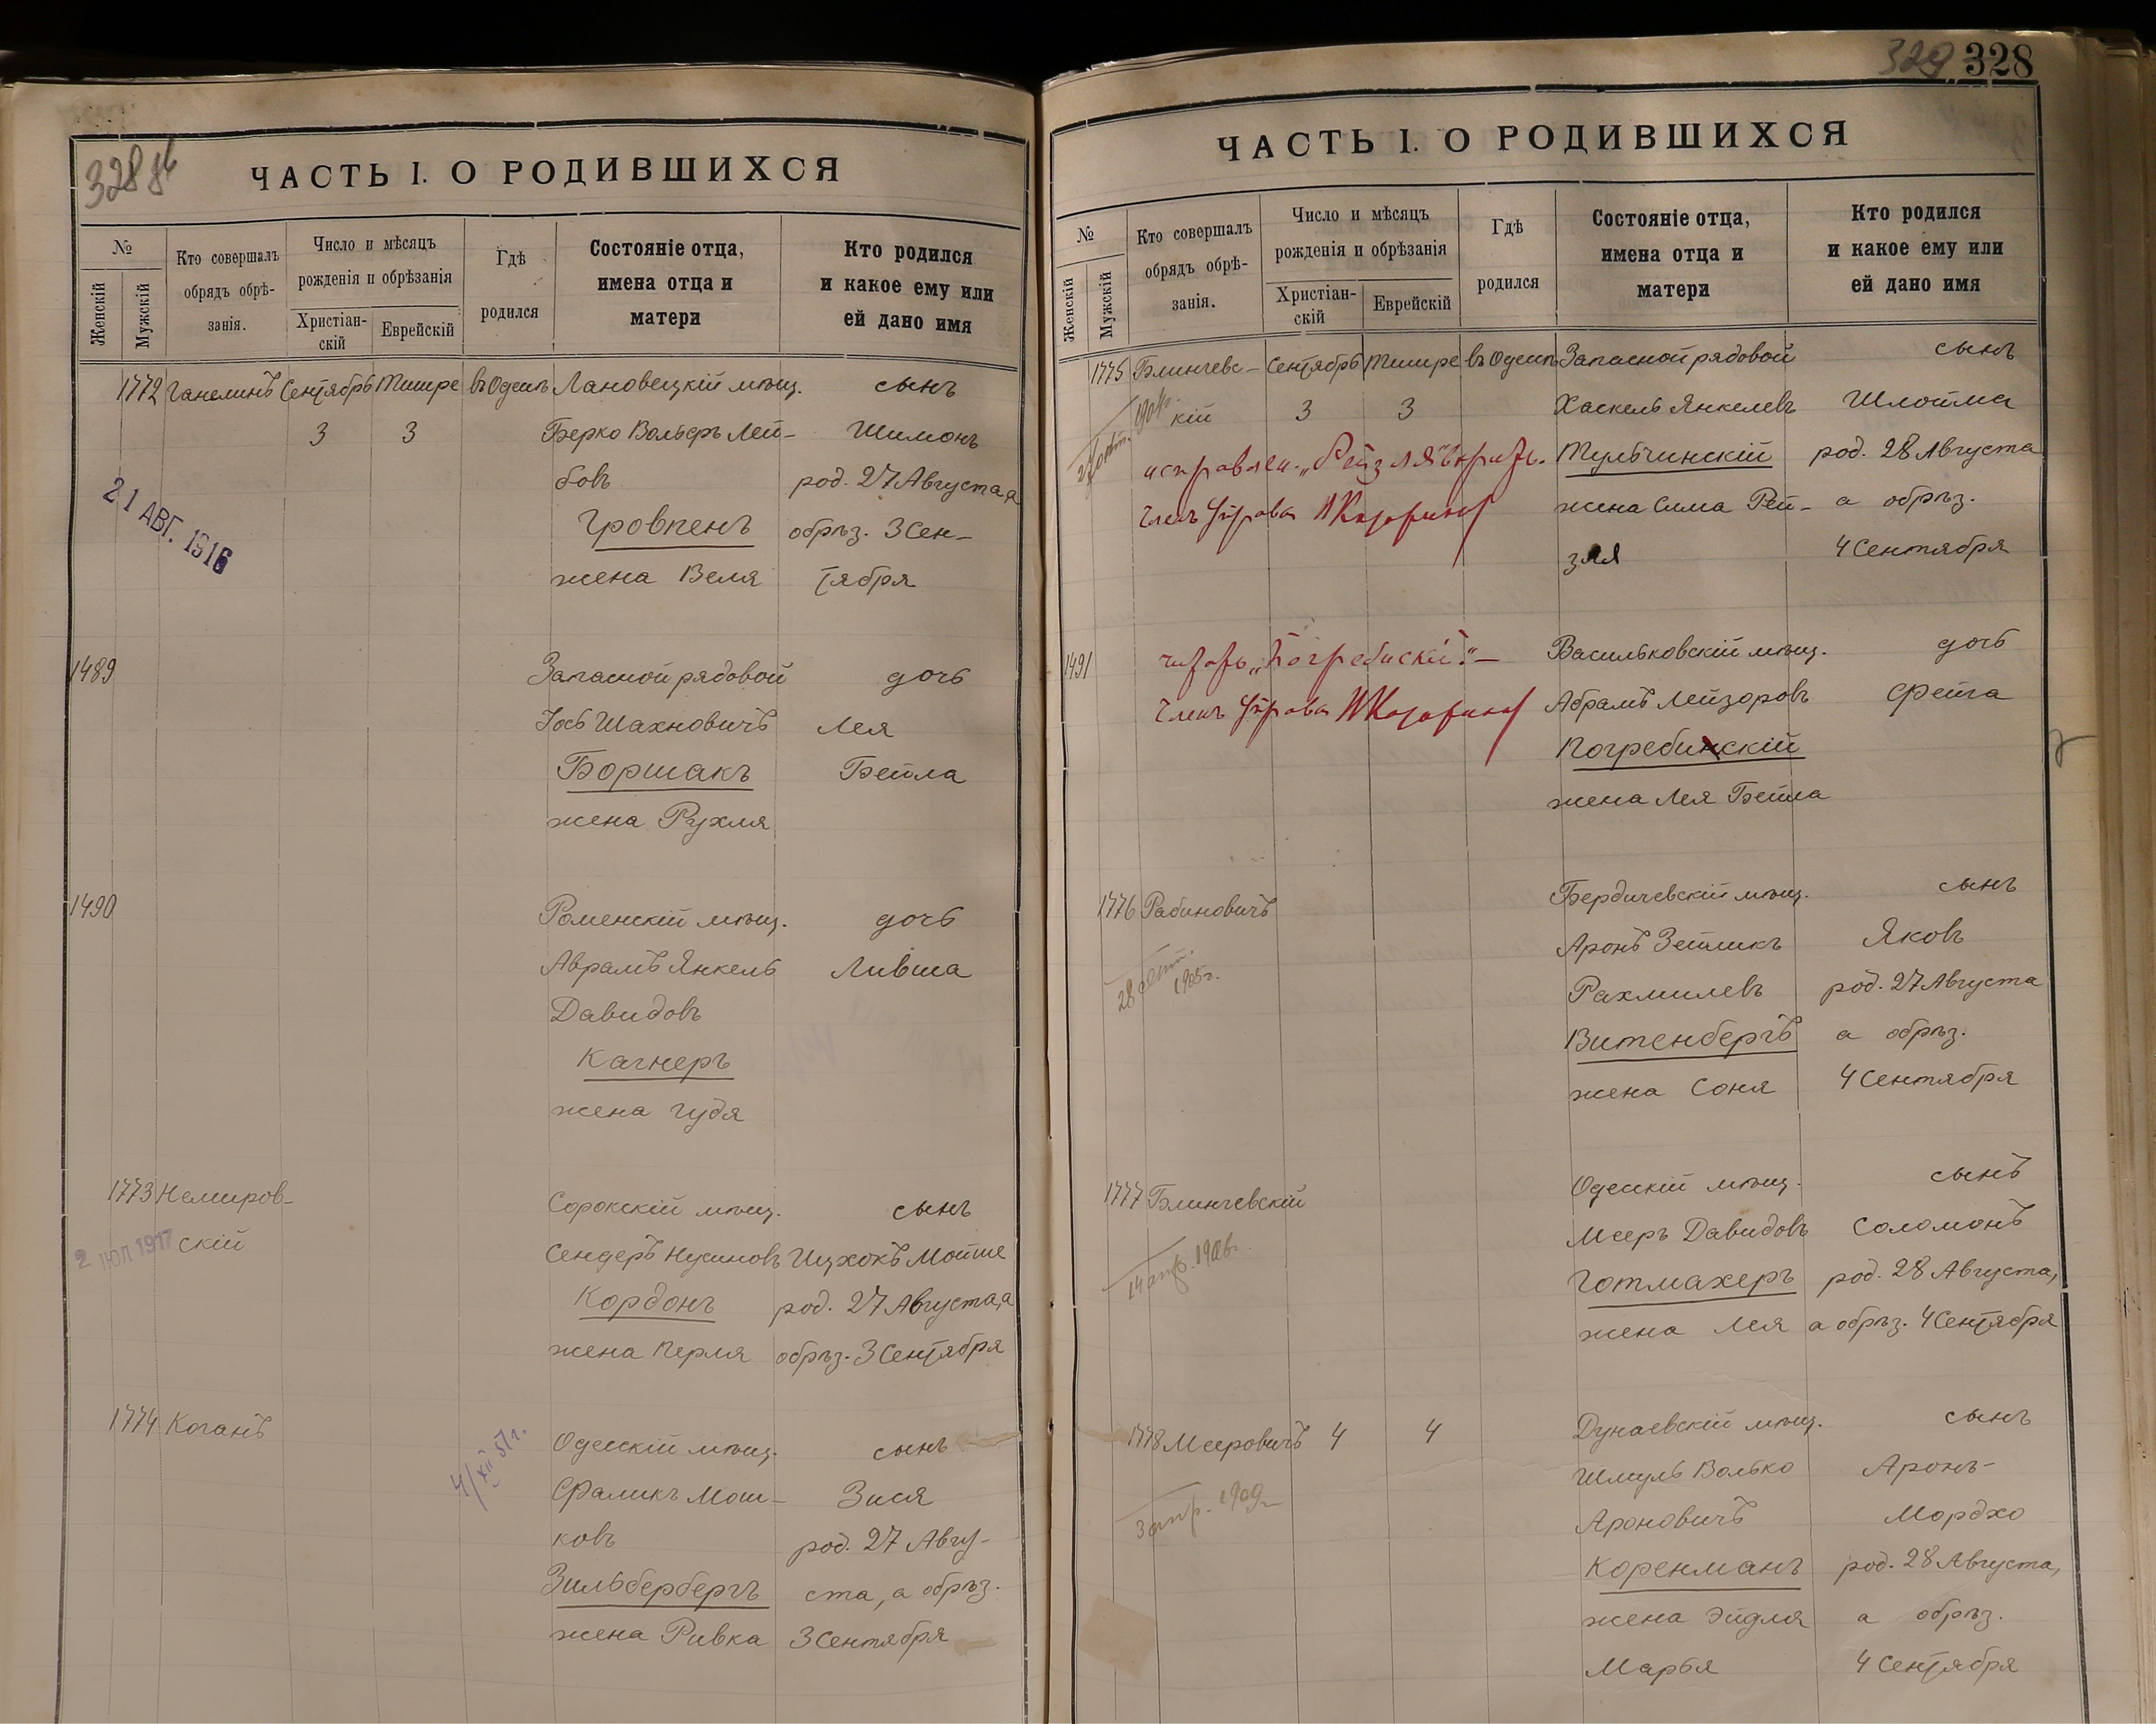 328 об
ЧАСТЬ I. О РОДИВШИХСЯ
№
Женскій
Мужскій
Кто совершалъ
обрядъ обрѣ-
занія.
Число и мѣсяцъ
рожденія и обрѣзанія
Христіан-
скій
Еврейскій
Гдѣ
родился
Состояніе отца,
имена отца и
матери
Кто родился
и какое ему или
ей дано имя
1772 Ганелинъ Сентябрь Тишре въ Одессѣ Лановецкій мѣщ. сынъ
3 3 Берко Вольфъ Лей- Шимонъ
бовъ род. 27 Августа, а
21 АВГ. 1916
Гровпенъ обрѣз. 3 Сен-
жена Веля тября
1489 Запасной рядовой дочь
Іось Шахновичъ Лея
Боршакъ Бейла
жена Рухля
1490 Роменскій мѣщ. дочь
Аврамъ Янкель Ливша
Давидовъ
Кагнеръ
жена Гудя
1773 Немиров- Сорокскій мѣщ. сынъ
скій Сендеръ Нусиновъ Ицхокъ Мойше
2 ІЮЛ 1917
Кордонъ род. 27 Августа, а
жена Перля обрѣз. 3 Сентября
1774 Коганъ Одесскій мѣщ. сынъ
4/XII 51 г.
Фраликъ Мош- Зися
ковъ род. 27 Авгу-
Зильбербергъ ста, а обрѣз.
жена Ривка 3 Сентября
329 328
ЧАСТЬ I. О РОДИВШИХСЯ
№
Женскій
Мужскій
Кто совершалъ
обрядъ обрѣ-
занія.
Число и мѣсяцъ
рожденія и обрѣзанія
Христіан-
скій
Еврейскій
Гдѣ
родился
Состояніе отца,
имена отца и
матери
Кто родился
и какое ему или
ей дано имя
1775 Блинчевс- Сентябрь Тишре въ Одессѣ Запасной рядовой сынъ
кій 3 3 Хаскель Янкелевъ Шлойма
исправлен. „Рейзля" Тульчинскій род. 28 Августа
Членъ Управы жена Сима Рей- а обрѣз.
зля 4 Сентября
1491 читать „Погребискій" — Васильковскій мѣщ. дочь
Членъ Управы Абрамъ Лейзоровъ Фейга
Погребинскій
жена Лея Бейла
1776 Рабиновичъ Бердичевскій мѣщ. сынъ
Аронъ Зейликъ Яковъ
28 1905 г.
Рахмилевъ род. 27 Августа
Витенбергъ а обрѣз.
жена Соня 4 Сентября
1777 Блинчевскій Одесскій мѣщ. сынъ
Мееръ Давидовъ Соломонъ
14 апр. 1906 г.
Готмахеръ род. 28 Августа,
жена Лея а обрѣз. 4 Сентября
1778 Мееровичъ 4 4 Дунаевскій мѣщ. сынъ
Шмуль Волько Аронъ-
3 апр. 1909 г.
Ароновичъ Мордхо
Коренманъ род. 28 Августа,
жена Эйдля а обрѣз.
Марья 4 Сентября